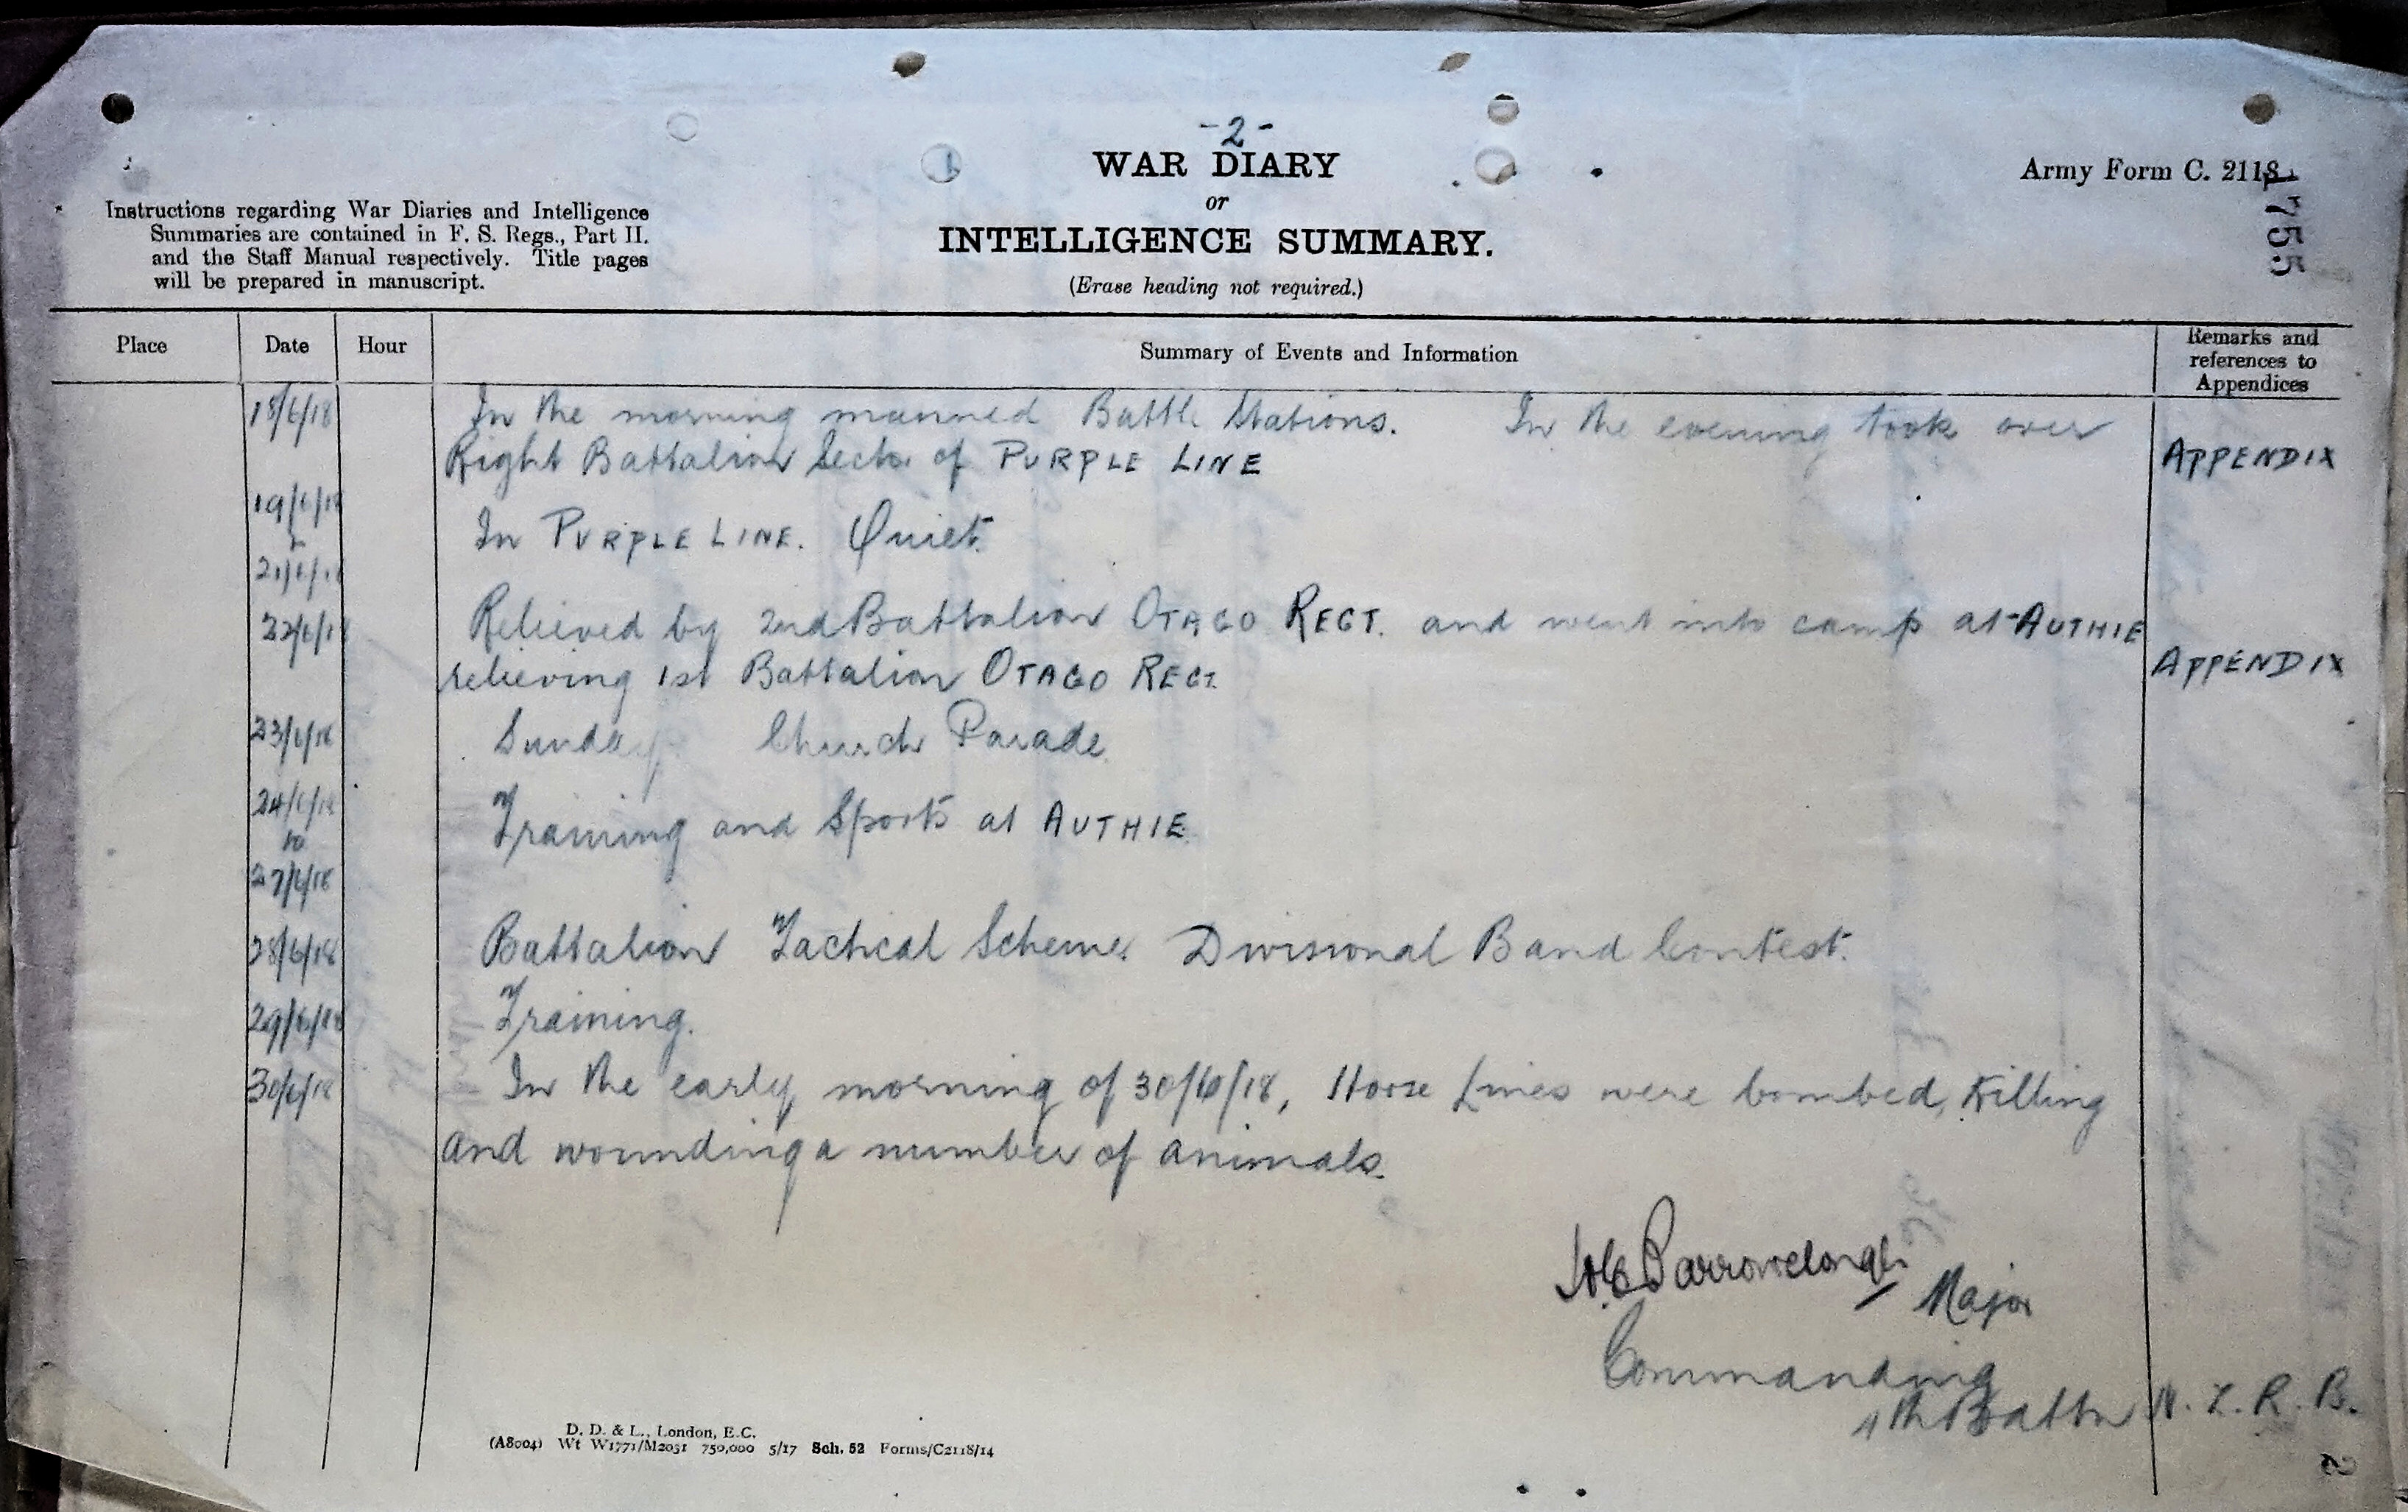 -2-
WAR DIARY
or
INTELLIGENCE SUMMARY.
(Erase heading not required.)
Army Form C. 2118.
1755
Instructions regarding War Diaries and Intelligence
Summaries are contained in F. S. Regs., Part II.
and the Staff Manual respectively. Title pages
will be prepared in manuscript.
Place Date Hour Summary of Events and Information Remarks and references to Appendices
18/6/18 In the morning manned Battle Stations. In the evening took over
Right Battalion Sector of PURPLE LINE APPENDIX
19/6/18
In PURPLE LINE. Quiet.
21/6/18
22/6/18 Relieved by 2nd Battalion OTAGO REGT. and went into camp at AUTHIE
relieving 1st Battalion OTAGO REGT. APPENDIX
23/6/18 Sunday Church Parade
24/6/18
to Training and Sports at AUTHIE.
27/6/18
28/6/18 Battalion Tactical Scheme. Divisional Band Contest.
29/6/18 Training.
30/6/18 In the early morning of 30/6/18, Horse Lines were bombed, killing
and wounding a number of animals.
Barrowclough Major
Commanding
4th Battn N. Z. R. B.
D. D. & L., London, E.C.
(A8004) Wt W1771/M2031 750,000 5/17 Sch. 52 Forms/C2118/14